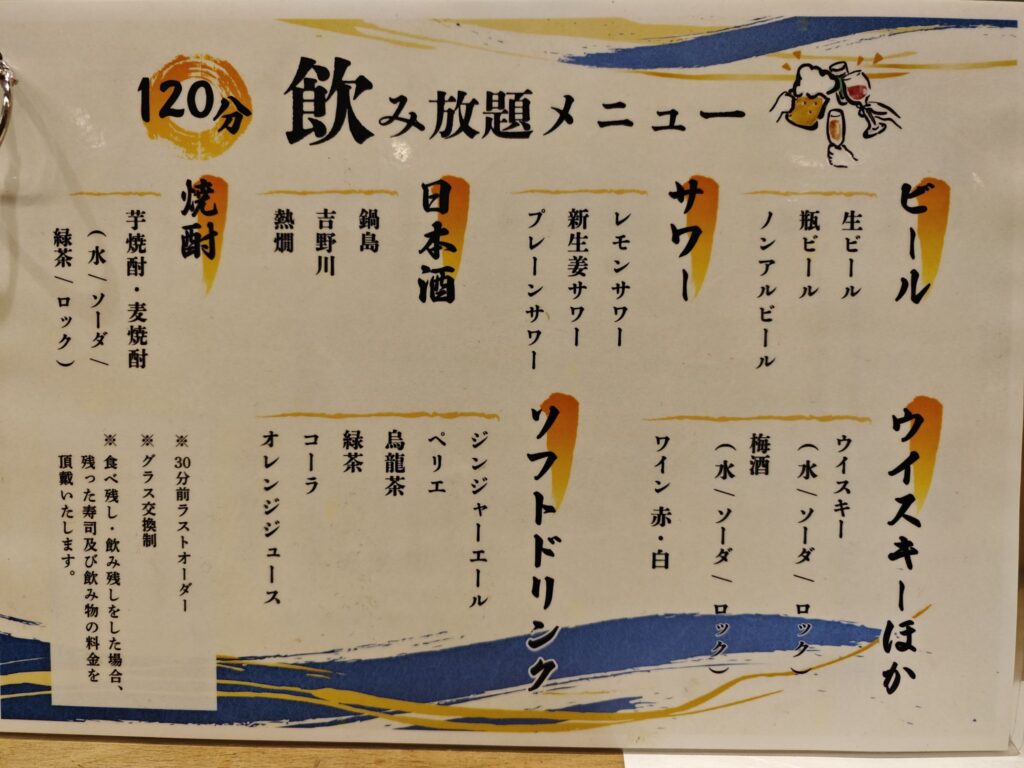 120分
飲み放題メニュー
ビール
生ビール
瓶ビール
ノンアルビール
サワー
レモンサワー
新生姜サワー
プレーンサワー
日本酒
鍋島
吉野川
熱燗
焼酎
芋焼酎・麦焼酎
(水/ソーダ/
緑茶/ロック)
ウイスキーほか
ウイスキー
(水/ソーダ/ロック)
梅酒
(水/ソーダ/ロック)
ワイン 赤・白
ソフトドリンク
ジンジャーエール
ペリエ
烏龍茶
緑茶
コーラ
オレンジジュース
※30分前ラストオーダー
※グラス交換制
※食べ残し・飲み残しをした場合、
残った寿司及び飲み物の料金を
頂戴いたします。